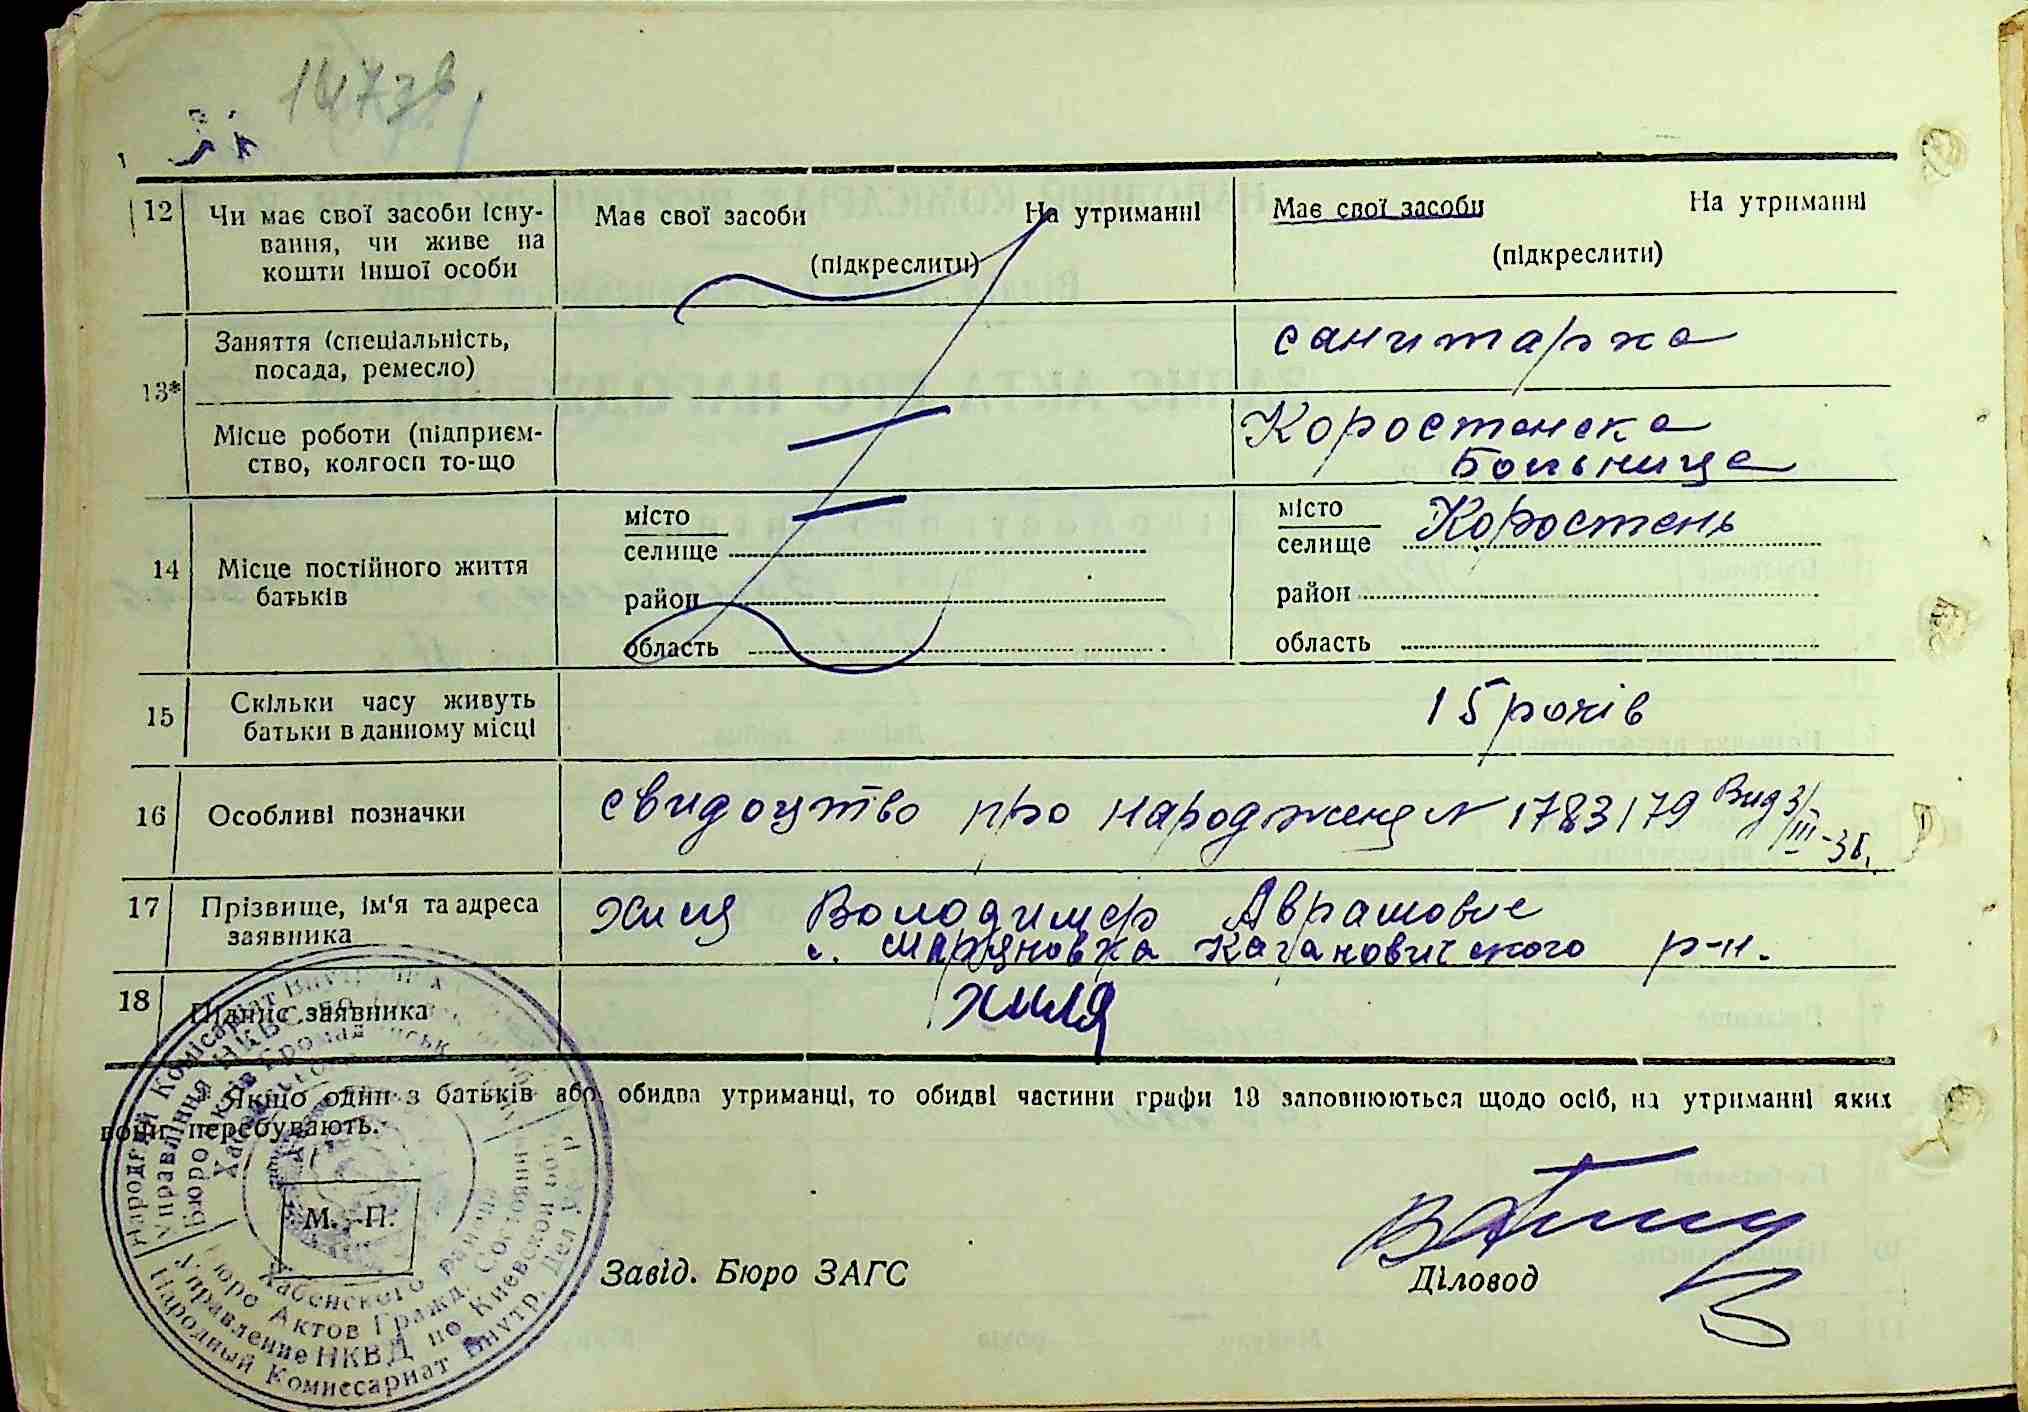 12 Чи має свої засоби існу-
вання, чи живе на
кошти іншої особи
Має свої засоби На утриманні
(підкреслити)
Має свої засоби На утриманні
(підкреслити)
13*
Заняття (спеціальність,
посада, ремесло)
санитарка
Місце роботи (підприєм-
ство, колгосп то-що
Коростенска
Больница
14 Місце постійного життя
батьків
місто
селище
район
область
місто
селище Коростень
район
область
15 Скільки часу живуть
батьки в данному місці
15 років
16 Особливі позначки
свидоцтво про народжен N 1783179 Вид 3/
III-38.
17 Прізвище, ім'я та адреса
заявника
Хиля Володимер Аврамович
с. Марьяновка Кагановичского р-н.
18 Підпис заявника
Хиля
* Якщо один з батьків або обидва утриманці, то обидві частини графи 13 заповнюються щодо осіб, на утриманні яких
вони перебувають.
М. П.
Завід. Бюро ЗАГС
Діловод
Народній Комісаріат Внутрішніх
Управління НКВС
Бюро Актів Громадянськ
Хабенского района
Бюро Актов Гражд. Состояния
Управление НКВД по Киевской
Народный Комиссариат Внутр. Дел